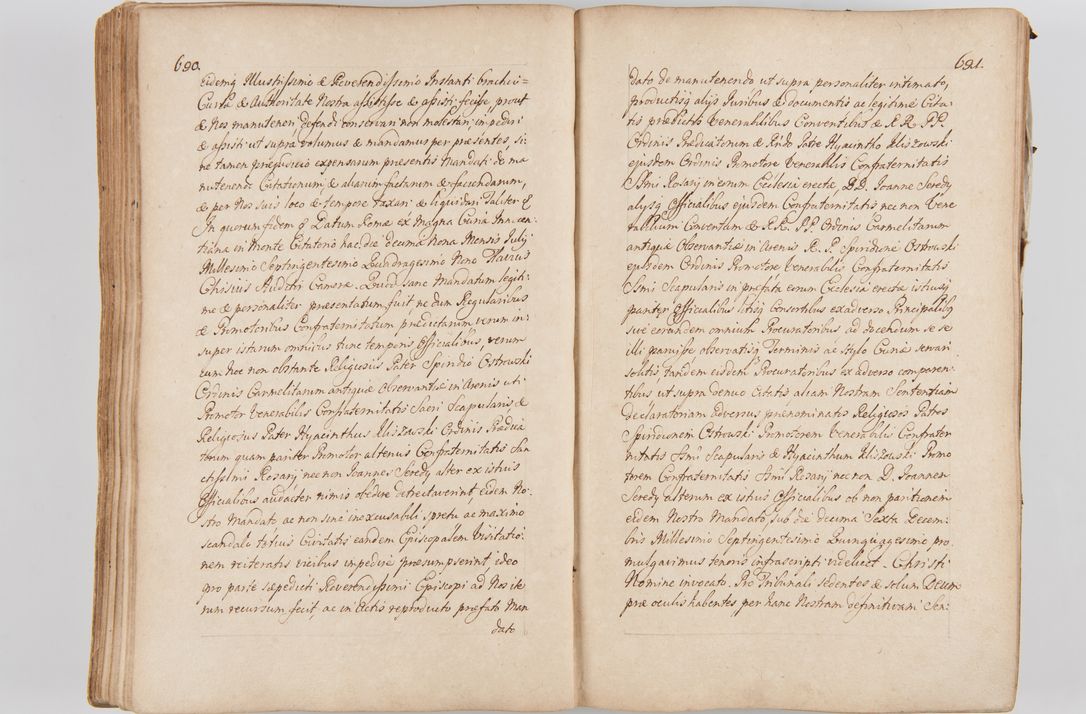 690.
Eidemq Illustrissimo & Reverendissimo Instanti brachio=
Curia & Authoritate Nostra astitisse & assisti fecisse, prout
& Nos manuteneri, defendi conservari non molestari, impediri
& assisti ut supra volumus & mandamus per præsentes, si:
ne tamen præjudicio expensarum præsentis Mandati de ma
nutenendo Citationum, & aliarum factarum & faciendarum,
& per Nos suis loco & tempore taxari & liquidari Taliter &
In quorum fidem & Datum Romæ ex Magna Curia Innocen:
tiana in Monte Citatorio hac die decima nona Mensis Julij
Millesimo Septingentesimo Quadragesimo Nono Flavius
Chisius Auditor Cameræ. Quod sane Mandatum legiti:
me & personaliter præsentatum fuit, ne dum Regularibus
& Promotoribus Confraternitatum prædictarum verum in:
super istarum omnibus tunc temporis Officialibus verum
cum hoc non obstante Religiosus Pater Spiridio Ostrowski
Ordinis Carmelitarum antiquæ Observantiæ in Arenis uti
Promotor Venerabilis Confraternitatis Sacri Scapularis, &
Religiosus Pater Hyacinthus Kliszowski Ordinis Prædica
torum quam pariter Promotor alterius Confraternitatis San
ctissimi Rosarij nec non Joannes Seredy alter ex istius
Officialibus audacter nimis obedire detrectaverint, eidem No:
stro Mandato ac non sine inexcusabili spretu ac maximo
scandalo totius Civitatis eandem Episcopalem Visitatio:
nem reiteratis vicibus impedire præsumpserint, ideo
pro parte sæpedicti Reverendissimi Episcopi ad Nos ite
rum recursum fecit, ac in Actis reproducto præfato Man
dato
691.
dato de manutenendo ut supra personaliter intimato,
productisq alijs Juribus & documentis ac legitime Cita:
tis prædictis Venerabilibus Conventibus & R. R. P.P.
Ordinis Prædicatorum & Rndo Patre Hyacintho Kliszowski
ejusdem Ordinis Promotore Venerabilis Confraternitatis
SSmi Rosarij in eorum Ecclesia erectæ, D.D. Joanne Seredy
alijsq Officialibus ejusdem Confraternitatis nec non Vene
rabilium Conventum & R.R. P.P. Ordinis Carmelitarum
antiquæ Observantiæ in Arenis R. P. Spiridione Ostrowski
ejusdem Ordinis Promotore Venerabilis Confraternitatis
SSmi Scapularis in præfata eorum Ecclesia erectæ istiusq
pariter Officialibus litisq Consortibus ex adverso Principalibq
sive eorundem omnium Procuratoribus ad docendum se se
illi paruisse observatisq Terminis ac Stylo Curiæ servari
solitis, tandem eisdem Procuratoribus ex adverso comparen:
tibus ut supra denuo Citatis aliam Nostram Sententiam
declaratoriam adversus prænominatos Religiosos Patres
Spiridionem Ostrowski Promotorem Venerabilis Confrater
nitatis SSmi Scapularis & Hyacinthum Kliszowski Promo
torem Confraternitatis SSmi Rosarij nec non D. Joannem
Seredy alterum ex istius Officialibus ob non paritionem
eidem Nostro Mandato, sub die decima Sexta Decem:
bris Millesimo Septingentesimo Quinquagesimo pro:
mulgavimus tenoris infrascripti videlicet. Christi
Nomine invocato. Pro Tribunali sedentes & solum Deum
præ oculis habentes, per hanc Nostram definitivam Sen: